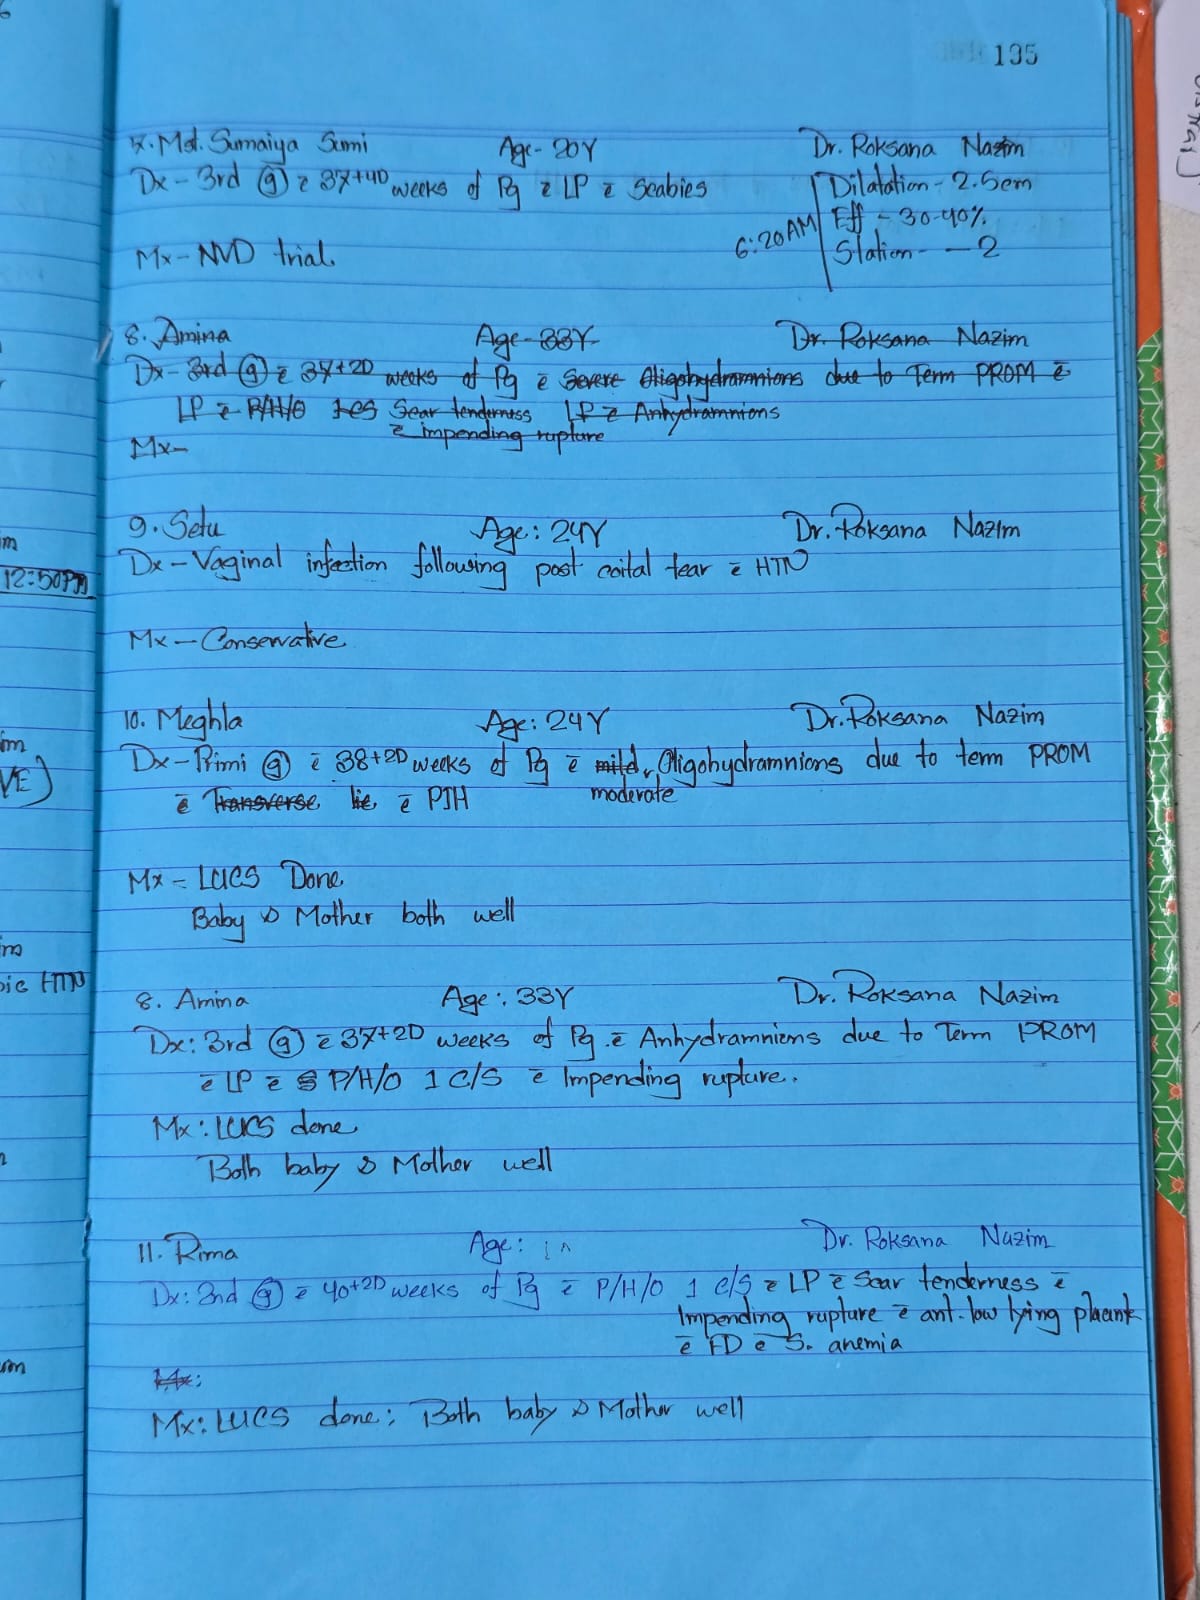 195
7. Mst. Sumaiya Sumi Age- 20Y Dr. Roksana Nazim
Dx - 3rd (g) c̄ 37+4D weeks of Pg c̄ LP c̄ Scabies
Dilatation - 2.5cm
6:20AM Eff - 30-40%
Mx - NVD trial. Station - -2
8. Amina Age-33Y Dr. Roksana Nazim
Dx - 3rd (g) c̄ 37+2D weeks of Pg c̄ Severe Oligohydramnions due to Term PROM c̄
LP c̄ P/H/O 1 CS Scar tenderness LP c̄ Anhydramnions
c̄ impending rupture
Mx-
9. Setu Age: 24Y Dr. Roksana Nazim
Dx - Vaginal infection following post coital tear c̄ HTN
Mx - Conservative
10. Meghla Age: 24Y Dr. Roksana Nazim
Dx - Primi (g) c̄ 38+2D weeks of Pg c̄ mild, Oligohydramnions due to term PROM
moderate
c̄ Transverse lie c̄ PIH
Mx - LUCS Done
Baby & Mother both well
8. Amina Age: 33Y Dr. Roksana Nazim
Dx: 3rd (g) c̄ 37+2D weeks of Pg c̄ Anhydramnions due to Term PROM
c̄ LP c̄ P/H/O 1 C/S c̄ Impending rupture.
Mx: LUCS done
Both baby & Mother well
11. Rima Age: Dr. Roksana Nazim
Dx: (g) c̄ 40+2D weeks of Pg c̄ P/H/O 1 C/S c̄ LP c̄ Scar tenderness c̄
Impending rupture c̄ ant. low lying
c̄ FD c̄ S. anemia
Mx:
Mx: LUCS done; Both baby & Mother well
12:50PM
VE)
HTN